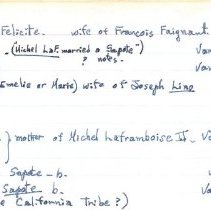 Felicite. wife of François Faignant.
(Michel LaF. married a Sapote") Van
? notes. Van
Emelie or Marie) wife of Joseph Lino
} mother of Michel Laframboise II. V
Sapote - b.
Sapote b. Va
e California tribe?)